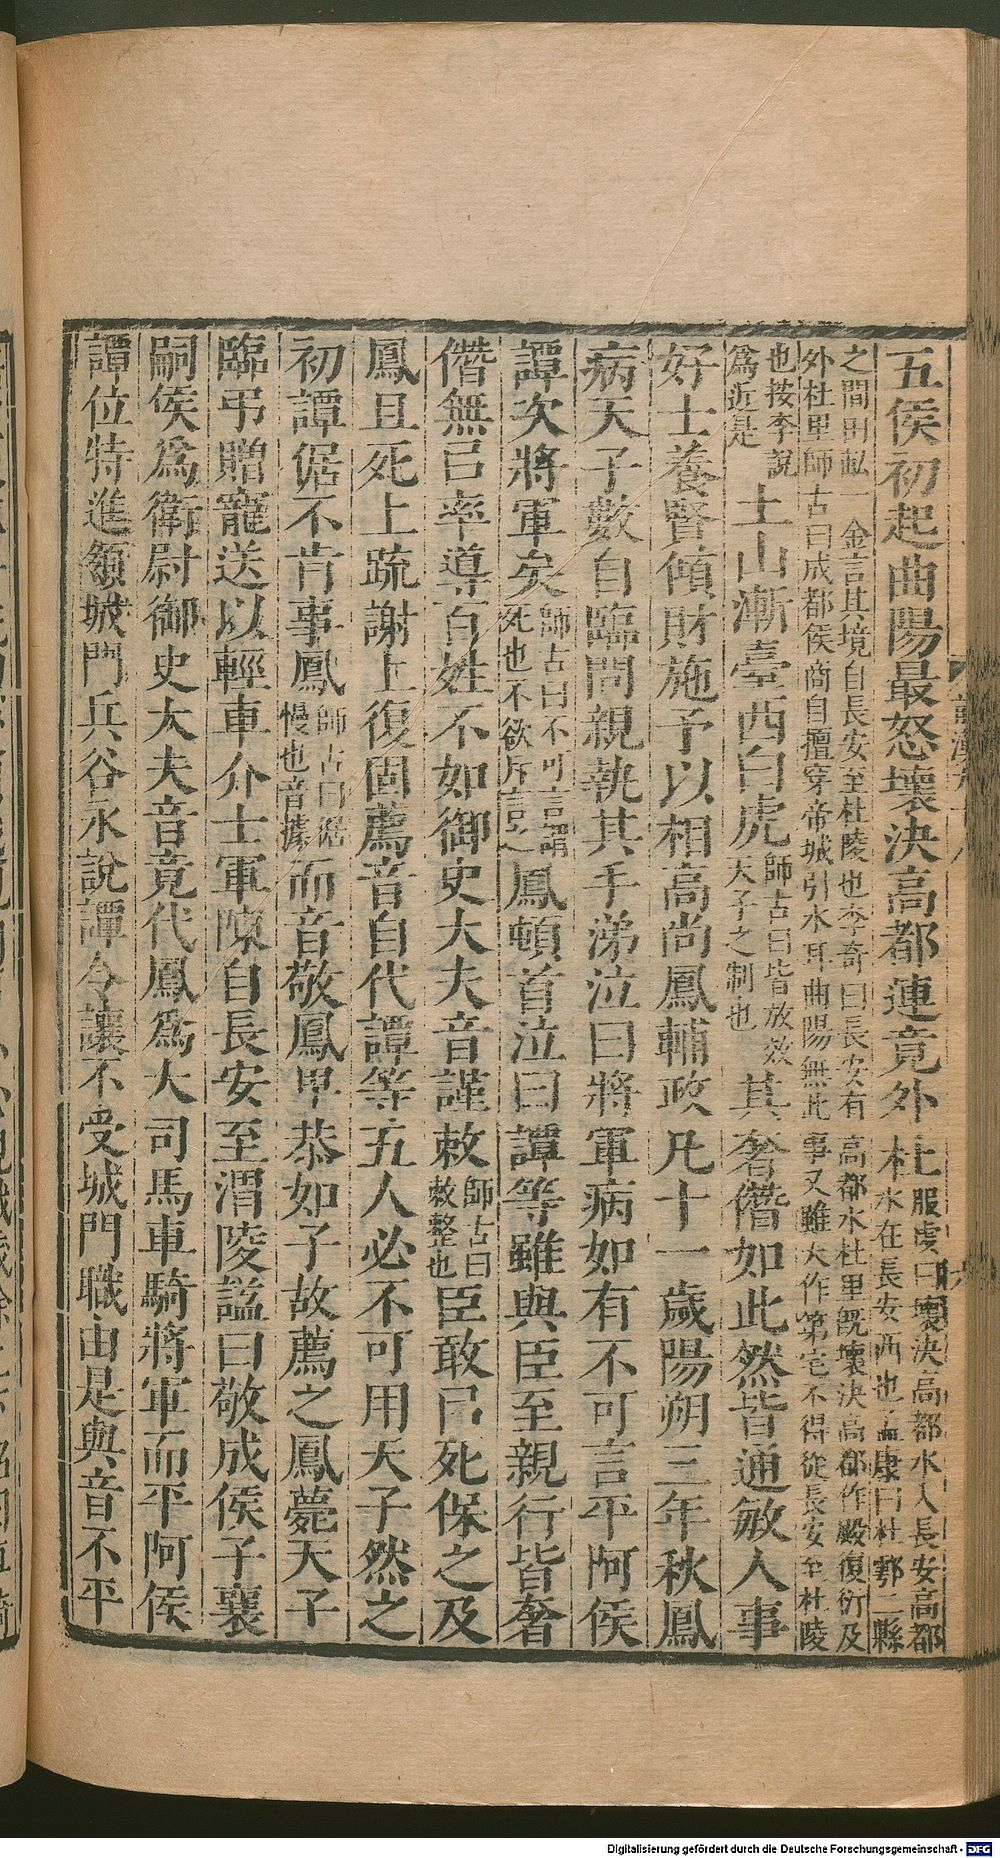 五侯初起曲陽最怒壞決高都連竟外杜服虔曰壞決高都水入長安高都水在長安西也孟康曰杜鄠二縣
之間田畝一金言其境自長安至杜陵也李奇曰長安有高都水杜里既壞決高都作殿復衍及
外杜里師古曰成都侯商自擅穿帝城引水耳曲陽無此事又雖大作第宅不得從長安至杜陵
也按李說爲近是土山漸臺西白虎師古曰皆放效天子之制也其奢僭如此然皆通敏人事
好士養賢傾財施予以相高尚鳳輔政凡十一歲陽朔三年秋鳳
病天子數自臨問親執其手涕泣曰將軍病如有不可言平阿侯
譚次將軍矣師古曰不可言謂死也不欲斥言之鳳頓首泣曰譚等雖與臣至親行皆奢
僭無已率導百姓不如御史大夫音謹敕師古曰敕整也臣敢已死保之及
鳳且死上疏謝上復固薦音自代譚等五人必不可用天子然之
初譚倨不肯事鳳師古曰倨慢也音據而音敬鳳卑恭如子故薦之鳳薨天子
臨弔贈寵送以輕車介士軍陳自長安至渭陵諡曰敬成侯子襄
嗣侯爲衛尉御史大夫音竟代鳳爲大司馬車騎將軍而平阿侯
譚位特進領城門兵谷永說譚令讓不受城門職由是與音不平
Digitalisierung gefördert durch die Deutsche Forschungsgemeinschaft - DFG